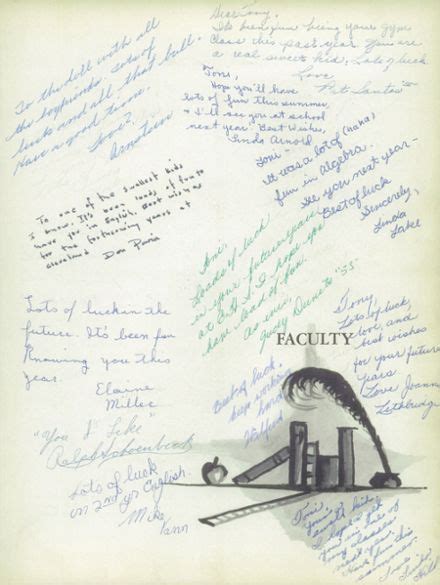 Dear Tony,
It's been fun being your gym
class this past year. You are
a real sweet kid. Lots of luck
Love
Pat Santos
To the doll with all
the boyfriends. Lots of
luck and all that bull.
Have a good time.
Love,
Toni,
Hope you'll have
lots of fun this summer
& I'll see you at school
next year. Best Wishes,
Linda Arnold
Toni-
It was a lot of (haha)
fun in algebra.
See you next year-
Best of luck
Sincerely,
Linda
Lake
To one of the smallest kids
I know. It's been loads of fun to
have you in English. Best wishes
for the forthcoming years at
Cleveland
Don
Loads of luck
in your future years
at I hope you
have load of fun.
As ever,
Judy "55"
Lots of luck in the
future. It's been fun
Knowing you this
year.
Elaine
Miller
FACULTY
Tony,
Lots of luck,
love, and
best wishes
for your future
years
Love Joann
Lethbridge
Best of luck.
keep working
hard
"You I Like"
Ralph
Lots of luck
in 2nd yr English.
Mike
Toni,
You're a
sweet kid
I hope I get
you in one of
my classes
next year.
Have fun this
summer.